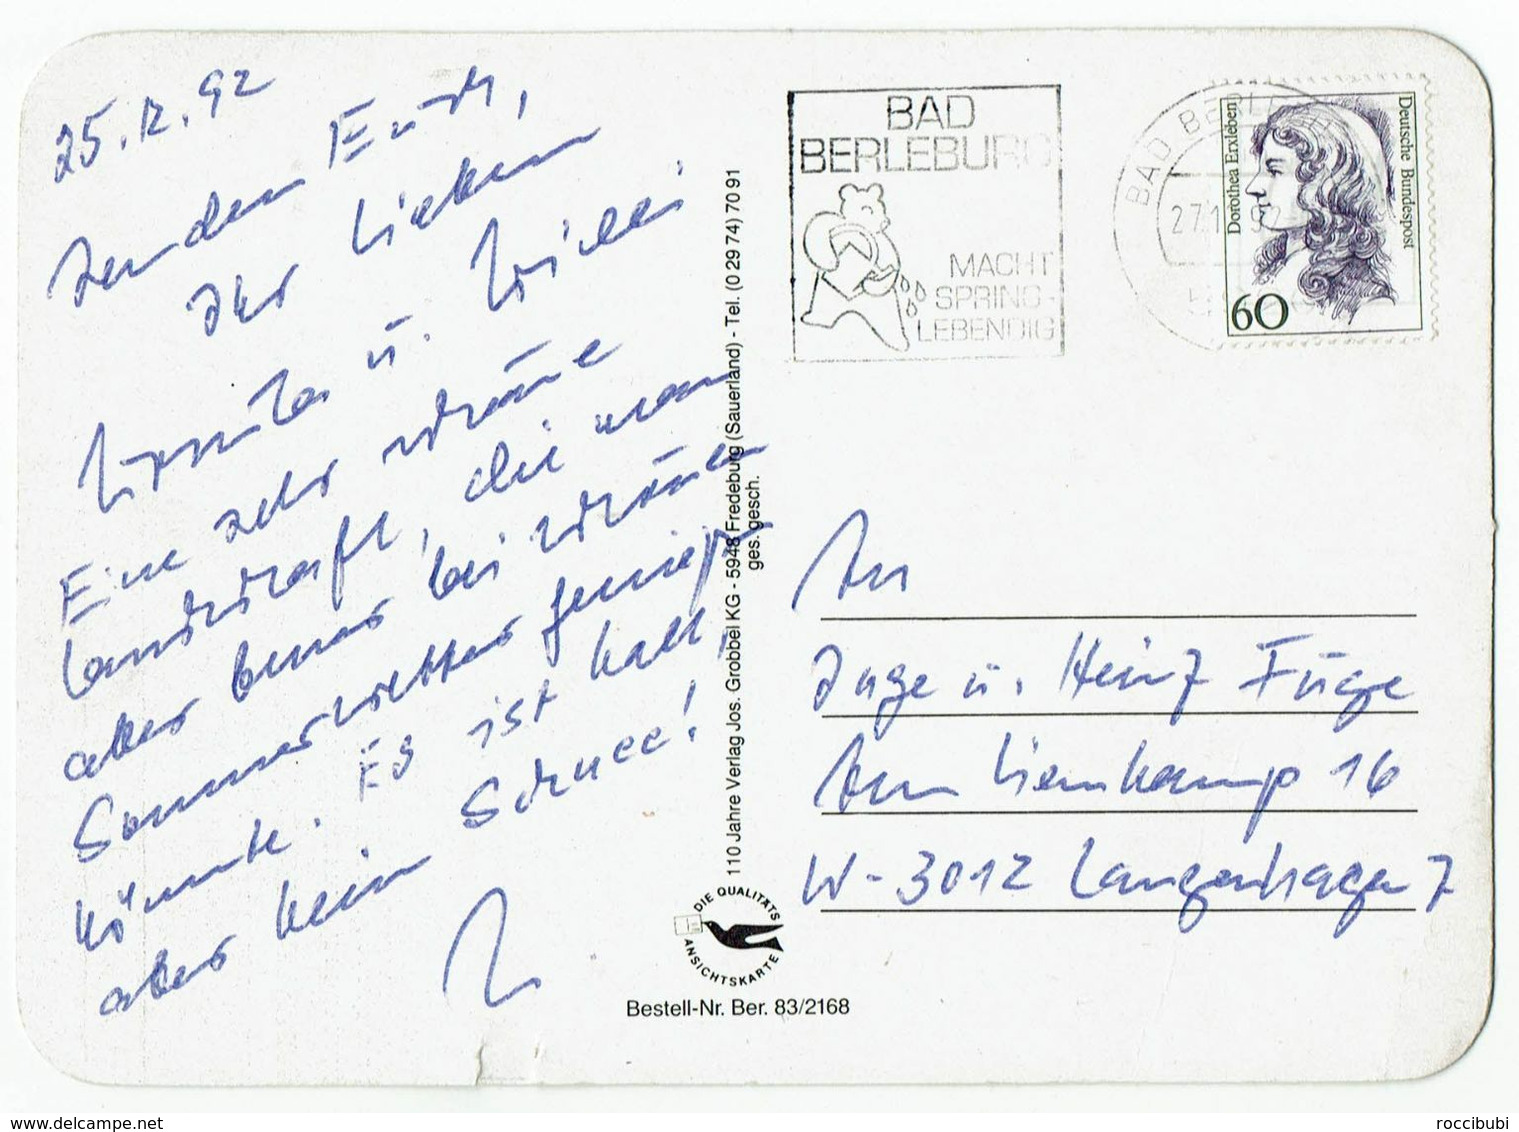 25.12.92
senden Euch,
Ihr Lieben
u. Willi
Eine sehr schöne
Landschaft, die man
aber besser bei schönem
Sommerwetter genießen
könnte. Es ist kalt,
aber kein Schnee!
BAD
BERLEBURG
MACHT
SPRING-
LEBENDIG
BAD BERLEBURG
Dorothea Erxleben
Deutsche Bundespost
60
110 Jahre Verlag Jos. Grobbel KG - 5948 Fredeburg (Sauerland) - Tel. (0 29 74) 70 91
ges. gesch.
DIE QUALITÄTS
ANSICHTSKARTE
Bestell-Nr. Ber. 83/2168
An
Inge u. Heinz Füge
Am Lienkamp 16
W-3012 Langenhagen 7
www.delcampe.net
roccibubi